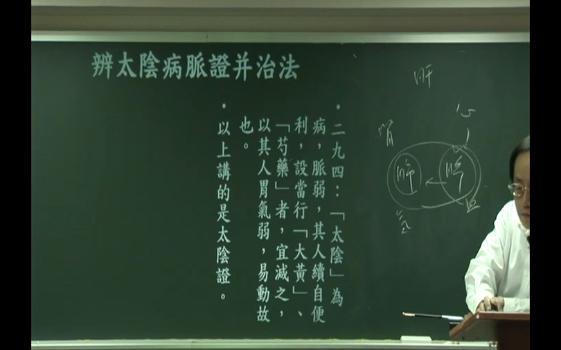 辨太陰病脈證并治法
・二九四：「太陰」為
病，脈弱，其人續自便
利，設當行「大黃」、
「芍藥」者，宜減之，
以其人胃氣弱，易動故
也。
・以上講的是太陰證。
肝
心